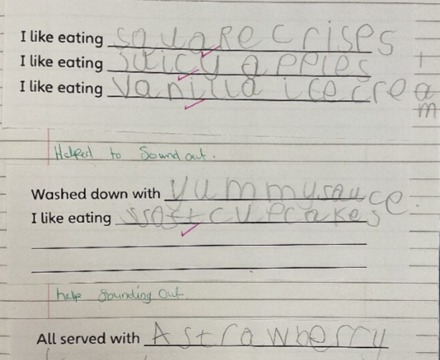 I like eating square crisps
I like eating juicy apples
I like eating vanilla icecream
Helped to Sound out.
Washed down with yummysauce.
I like eating cupcakes
help Sounding Out.
All served with A strawberry